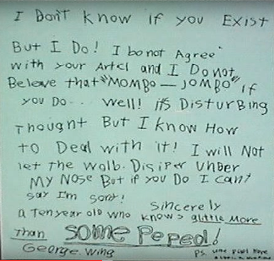 I DON'T KNOW IF YOU EXIST
BUT I DO! I bo NOT AGREE
with your Artcl and I Do Not
Beleve that "MOMBO - JOMBO" IF
you Do.. Well! it's Disturbing
Thought But I know How
to Deal with it! I will Not
let the Wolb. Disiper UNBER
MY Nose But if you Do I can't
say I'm sorry!
Sincerely
A Ten year old who knows alittle More
Than SOME PEPEOL!
George Wing
P.S.